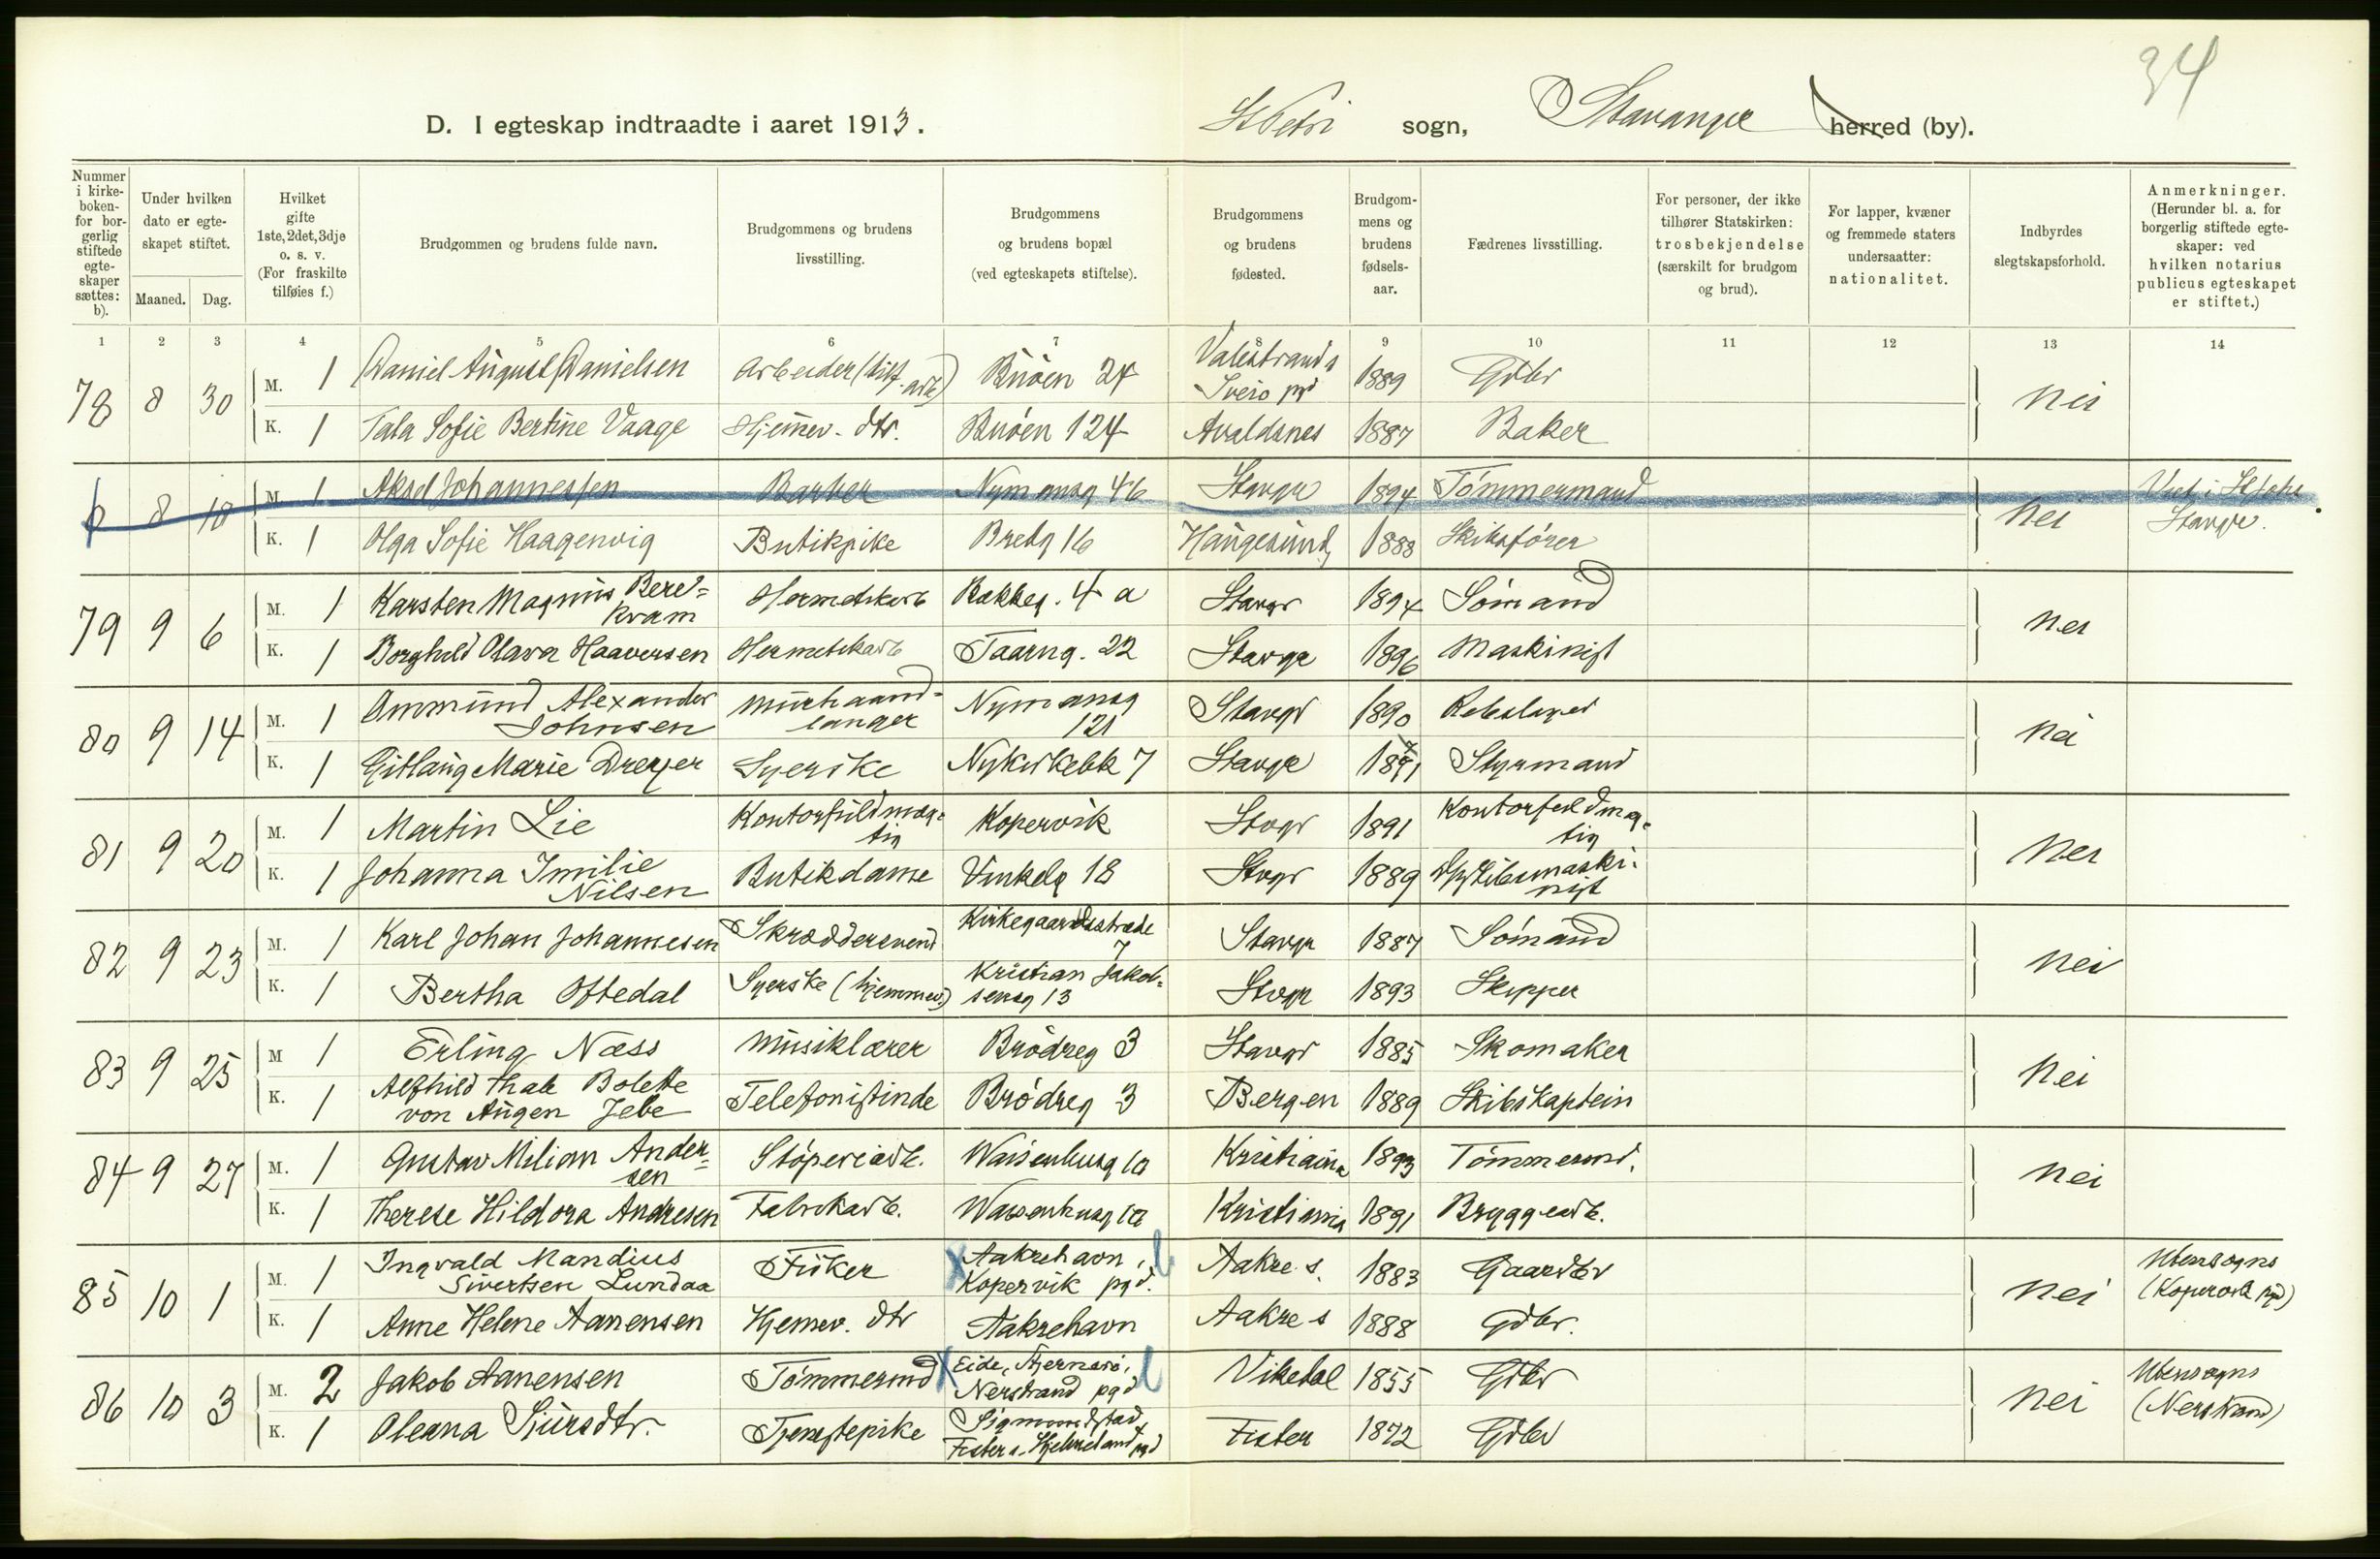 34
D. I egteskap indtraadte i aaret 1913.
St Petri sogn, Stavanger herred (by).
Nummer i kirke-boken- for bor-gerlig stiftede egte-skaper sættes: b).
Under hvilken dato er egte-skapet stiftet.
Maaned. Dag.
Hvilket gifte 1ste, 2det, 3dje o. s. v. (For fraskilte tilføies f.)
Brudgommen og brudens fulde navn.
Brudgommens og brudens livsstilling.
Brudgommens og brudens bopæl (ved egteskapets stiftelse).
Brudgommens og brudens fødested.
Brudgom-mens og brudens fødsels-aar.
Fædrenes livsstilling.
For personer, der ikke tilhører Statskirken: trosbekjendelse (særskilt for brudgom og brud).
For lapper, kvæner og fremmede staters undersaatter: nationalitet.
Indbyrdes slegtskapsforhold.
Anmerkninger. (Herunder bl. a. for borgerlig stiftede egte-skaper: ved hvilken notarius publicus egteskapet er stiftet.)
1 2 3 4 5 6 7 8 9 10 11 12 13 14
78 8 30 M. 1 Daniel August Danielsen Arbeider Buøen 24 Valestrands Sveio pgd 1889 Gdbr nei
K. 1 Tala Sofie Bertine Vaage Hjemev. dtr. Buøen 124 Avaldsnes 1887 Baker
b 8 10 M. 1 Aksel Johannessen Barber Nymansg 46 Stavgr 1894 Tømmermand nei Stavgr.
K. 1 Olga Sofie Haagenvig Butikpike Bredg 16 Haugesund 1888 Skibsfører
79 9 6 M. 1 Karsten Magnus Bere-kvam Hermetikarb Bakkeg. 4 a Stavgr 1894 Sømand nei
K. 1 Borghild Olava Haaversen Hermetikarb Taarng. 22 Stavgr 1896 Maskinist
80 9 14 M. 1 Ommund Alexander Johnsen Murhaand-langer Nymansg 121 Stavgr 1890 Rebslager nei
K. 1 Gitlaug Marie Dreyer Syerske Nykirkebk 7 Stavgr 1891 Styrmand
81 9 20 M. 1 Martin Lie Kontorfuldmæg-tig Kopervik Stvgr 1891 Kontorfuldmæg-tig nei
K. 1 Johanna Imilie Nilsen Butikdame Vinkelg 18 Stvgr 1889
82 9 23 M. 1 Karl Johan Johannesen Skræddersvend Kirkegaardsstræde 7 Stavgr 1887 Sømand nei
K. 1 Bertha Oftedal Syerske (hjemmev.) Kristian Jakob-sensg 13 Stvgr 1893 Skipper
83 9 25 M 1 Erling Næss Musiklærer Brødreg 3 Stavgr 1885 Skomaker nei
K. 1 Alfhild Thale Bolette von Augen Jebe Telefonistinde Brødreg 3 Bergen 1889 Skibskaptein
84 9 27 M. 1 Gustav Milian Ander-sen Støperiarb. Waisenhusg 10 Kristiania 1893 Tømmermd. nei
K. 1 Therese Hildora Andresen Fabrikarb. Waisenhusg 10 Kristiania 1891 Bryggearb.
85 10 1 M. 1 Ingvald Mandius Sivertsen Lundaa Fisker Aakrehavn, Kopervik pgd. Aakre s. 1883 Gaardbr nei Utensogns (Kopervik pgd)
K. 1 Anne Helene Aanensen Hjemev. dtr Aakrehavn Aakre s 1888 Gdbr.
86 10 3 M. 2 Jakob Aanensen Tømmermd Eide, Stjernerø, Nerstrand pgd Vikedal 1855 Gdbr nei Utensogns (Nerstrand)
K. 1 Oleana Sjursdtr. Tjenestepike Sigmundstad, Fister s. Hjelmeland pgd Fister 1872 Gdbr